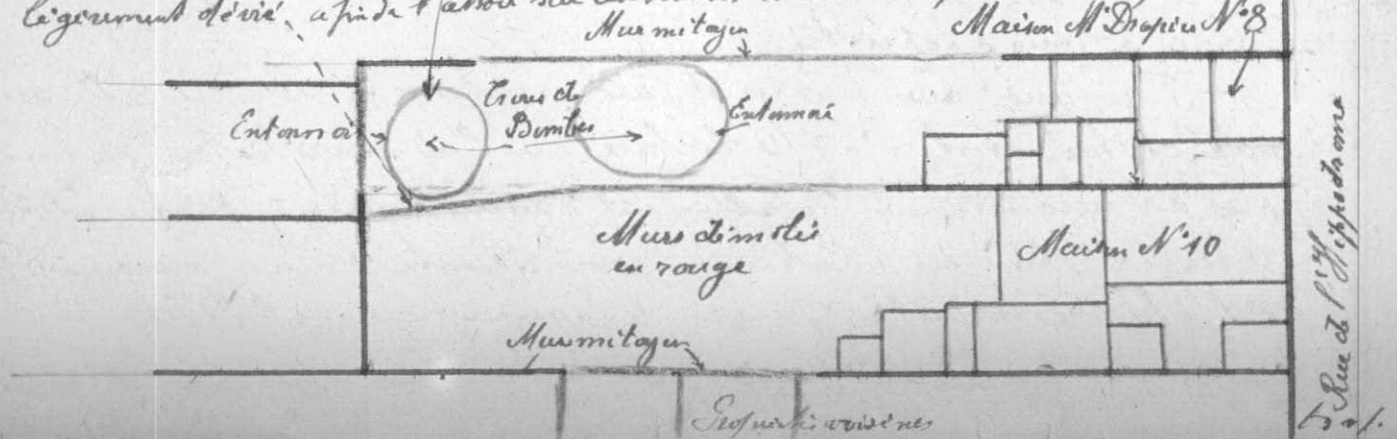 légèrement dévié, afin de l'assoir sur
Mur mitoyen
Maison Mr Drapier N°8
Entonnoir
Trous de
Bombes
Entonnoir
Murs démolis
en rouge
Maison N°10
Mur mitoyen
Propriétés voisines
Rue de l'Hippodrome